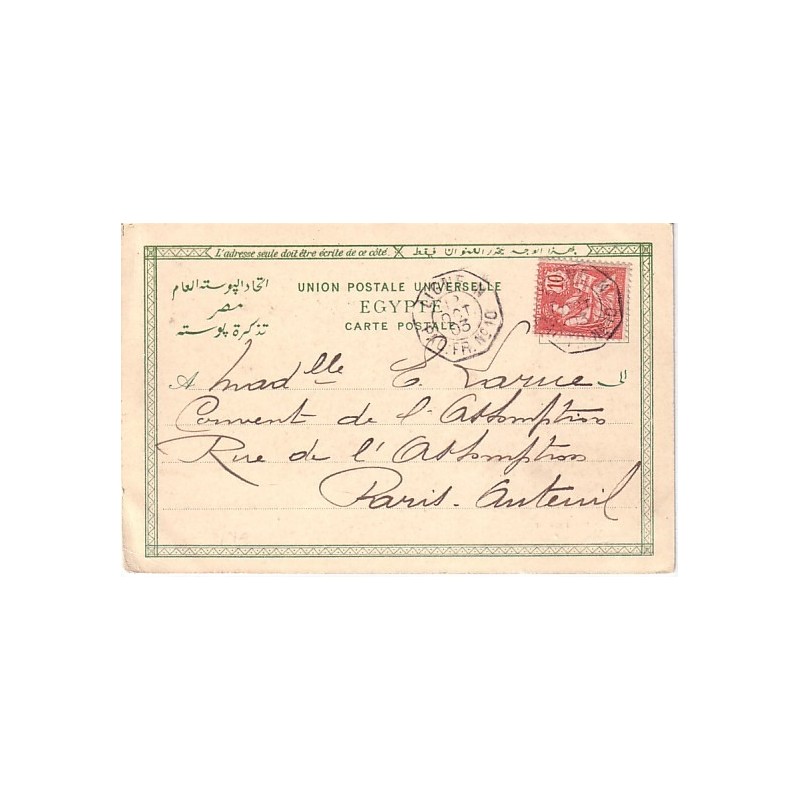 L'adresse seule doit être écrite de ce côté. بهذا الوجه يحرر العنوان فقط
اتحاد البوسته العام
مصر
تذكرة بوسته
UNION POSTALE UNIVERSELLE
EGYPTE
CARTE POSTALE
LIGNE N
OCT
03
PAQ. FR. No 10
10
A Madlle E. Larue الى
Couvent de l'Assomption
Rue de l'Assomption
Paris. Auteuil